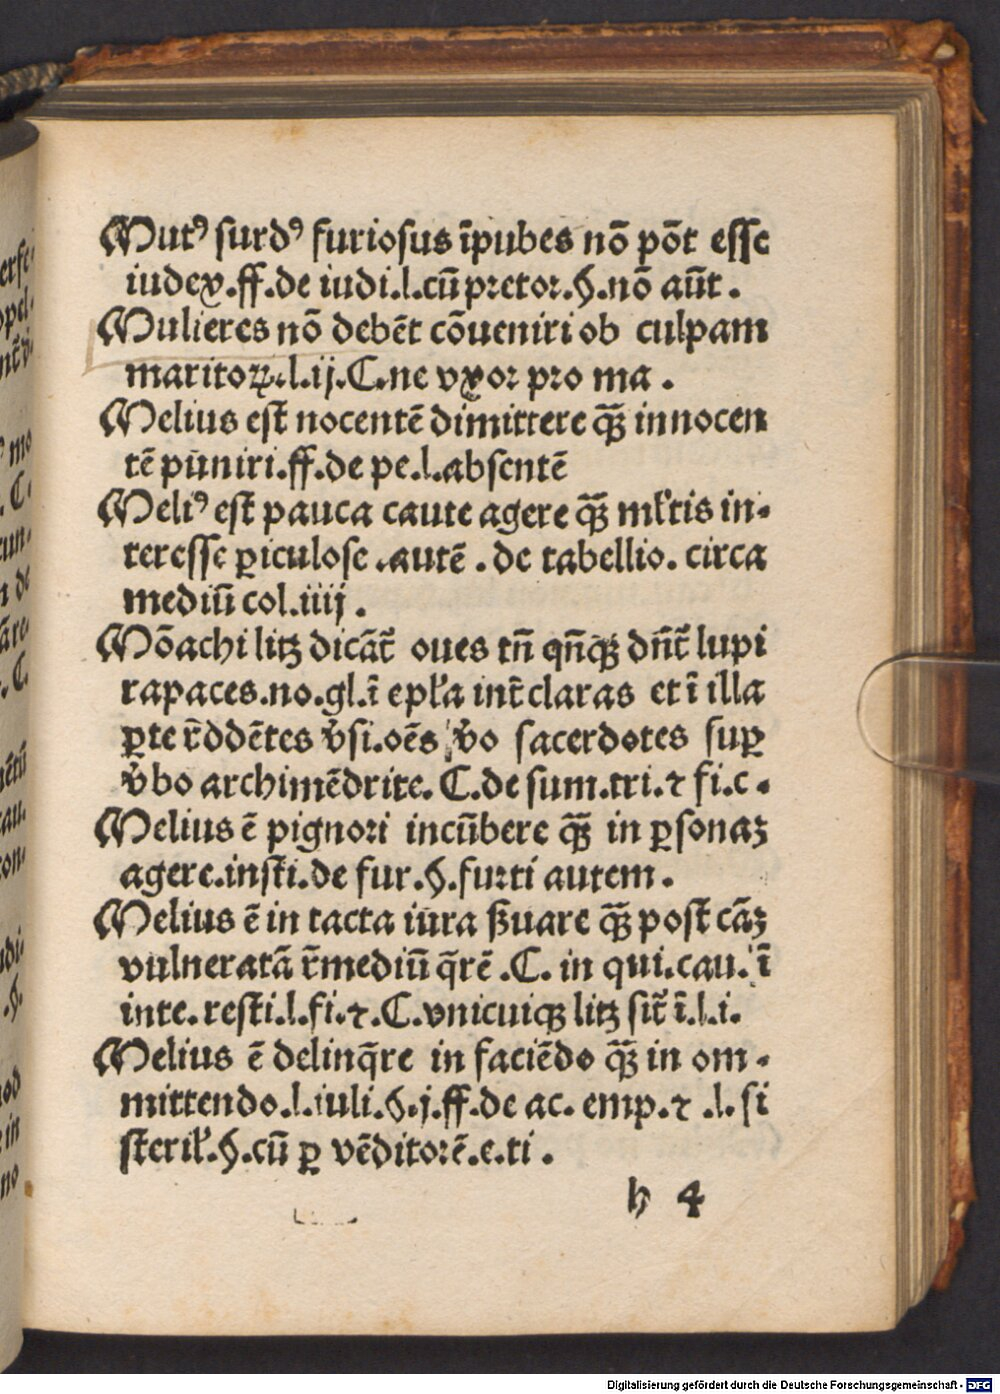 Mutꝰ surdꝰ furiosus īpubes nō pōt esse
iudex.ff.de iudi.l.cū pretor.§.nō aūt.
Mulieres nō debēt cōueniri ob culpam
maritoꝝ.l.ij.C.ne vxor pro ma.
Melius est nocentē dimittere qꝫ innocen
tē puniri.ff.de pe.l.absentē
Meliꝰ est pauca caute agere qꝫ ml'tis in-
teresse ꝑiculose.autē.de tabellio.circa
mediū col.iiij.
Mōachi litꝫ dicāt̄ oues tn̄ qn̄qꝫ dn̄t̄ lupi
rapaces.no.gl.ī epl'a int̄ claras et ī illa
ꝑte r̄ddētes v̓si.oēs v̓o sacerdotes suꝑ
v̓bo archimēdrite.C.de sum.tri.⁊ fi.c.
Melius ē pignori incūbere qꝫ in ꝑsonaꝫ
agere.insti.de fur.§.furti autem.
Melius ē in tacta iura ẞuare qꝫ post cāꝫ
vulneratā r̄mediū q̄rē.C. in qui.cau.ī
inte.resti.l.fi.⁊.C.vnicuiqꝫ litꝫ sit̄ ī.l.i.
Melius ē delinq̄re in faciēdo qꝫ in om-
mittendo.l.iuli.§.j.ff.de ac. emp.⁊ .l. si
steril'.§.cū ꝑ vēditorē.e.ti.
h 4
Digitalisierung gefördert durch die Deutsche Forschungsgemeinschaft - DFG